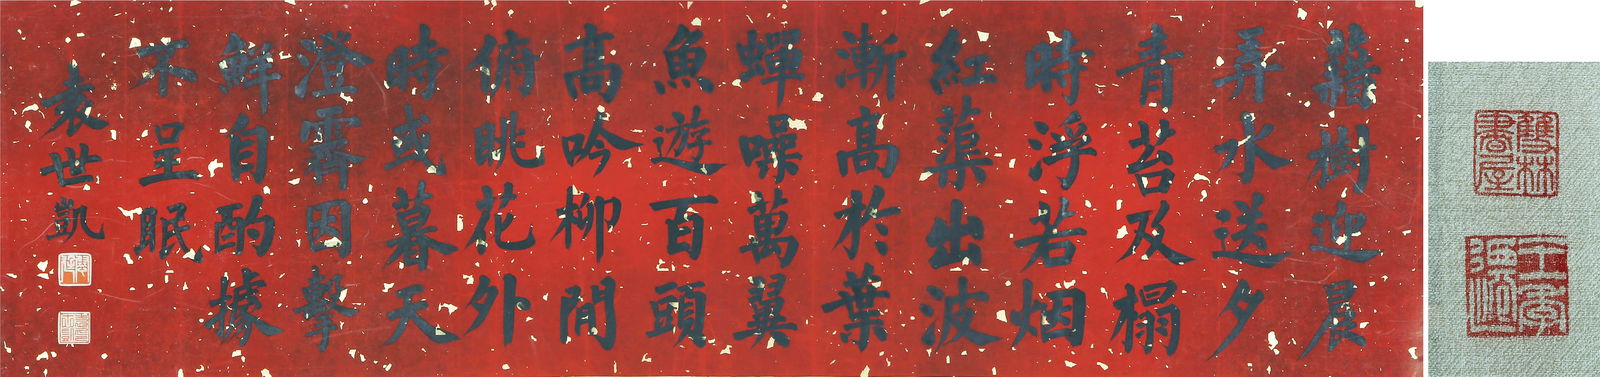 藉樹迎晨
弄水送夕
青苔及榻
時浮若烟
紅蕖出波
漸高於葉
蟬噪萬翼
魚遊百頭
高吟柳間
俯眺花外
時或暮天
澄霽因擊
鮮自酌據
不呈眠
袁世凱
雙林書屋